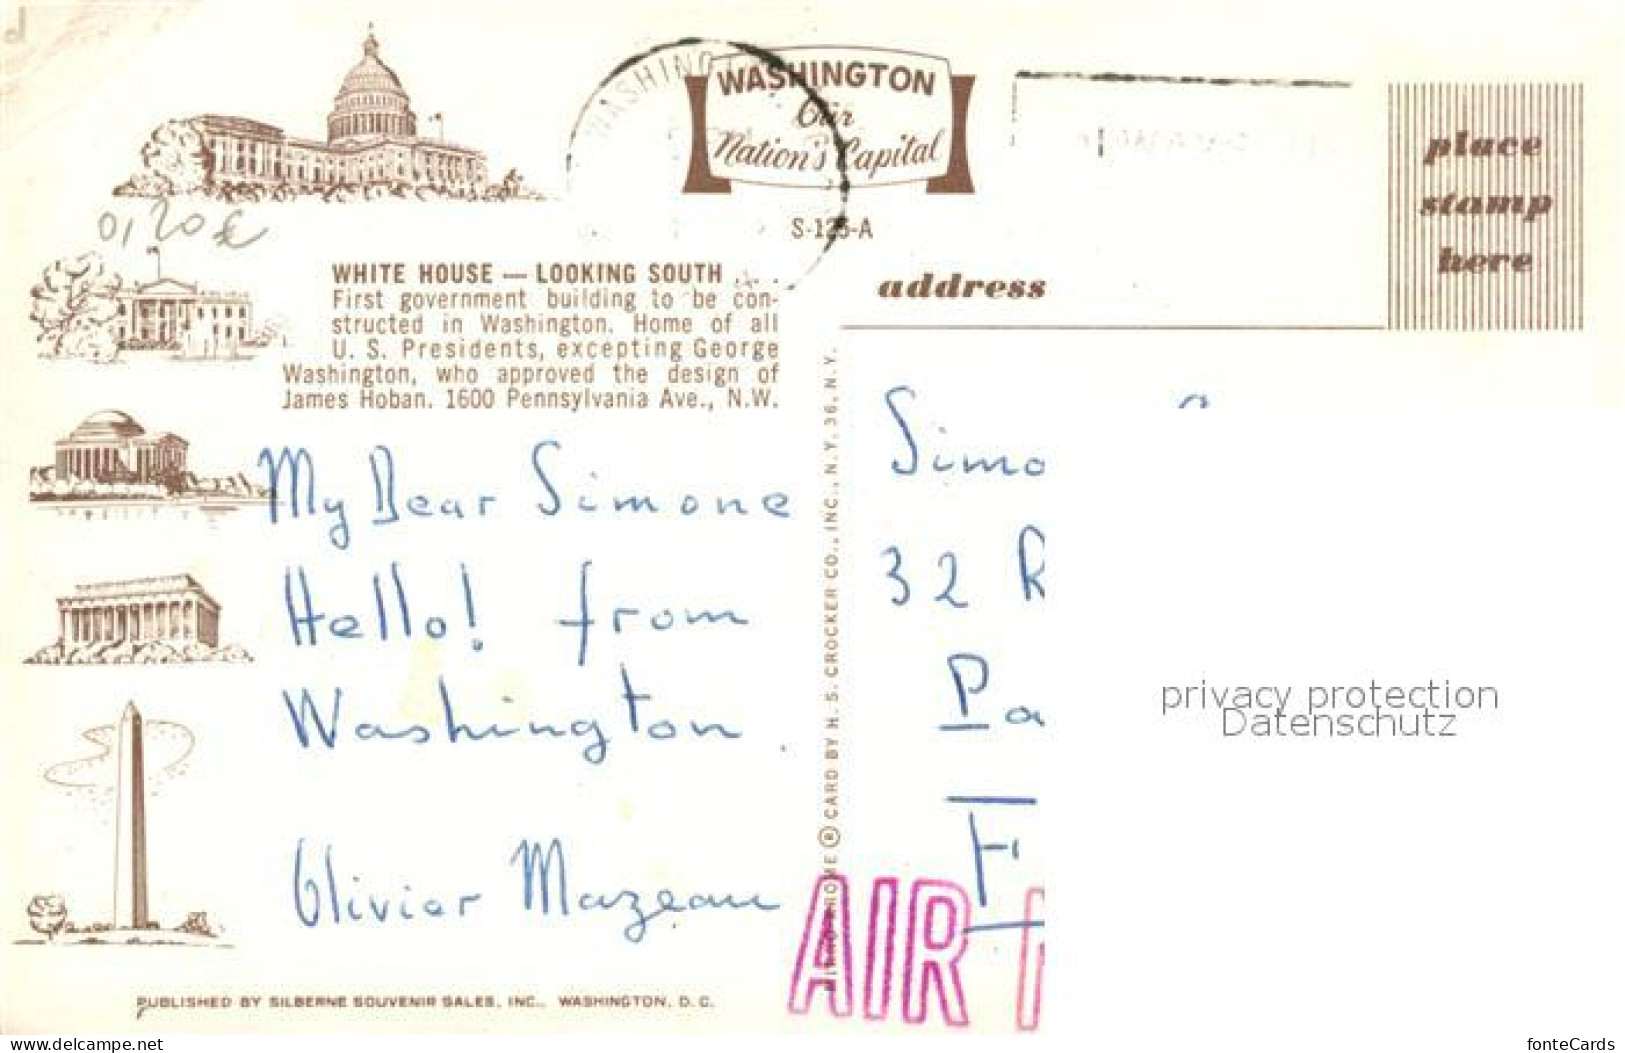 WASHINGTON
Our
Nation's Capital
S-125-A
place
stamp
here
0,20€
WHITE HOUSE — LOOKING SOUTH . . .
First government building to be con-
structed in Washington. Home of all
U. S. Presidents, excepting George
Washington, who approved the design of
James Hoban. 1600 Pennsylvania Ave., N.W.
address
My Dear Simone
Hello! from
Washington.
Olivier Mazeau
® CARD BY H. S. CROCKER CO., INC., N.Y. 36, N.Y.
Simo
32 R
Pa
F
AIR
privacy protection
Datenschutz
PUBLISHED BY SILBERNE SOUVENIR SALES, INC., WASHINGTON, D. C.
www.delcampe.net
fonteCards